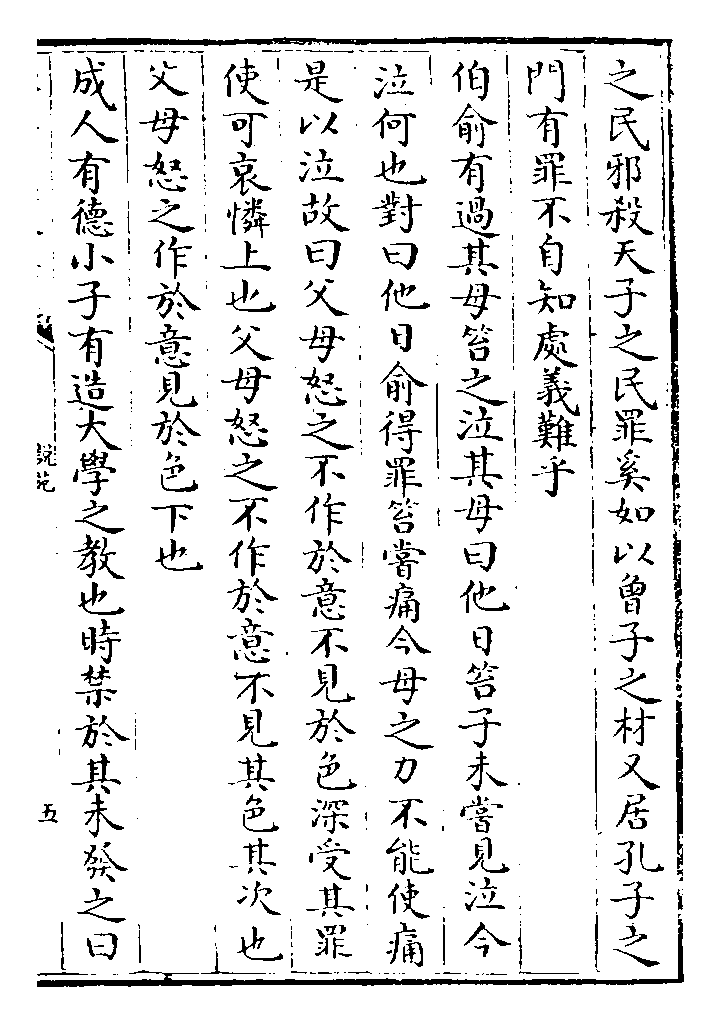 之民邪殺天子之民罪奚如以曾子之材又居孔子之
門有罪不自知處義難乎
伯俞有過其母笞之泣其母曰他日笞子未嘗見泣今
泣何也對曰他日俞得罪笞嘗痛今母之力不能使痛
是以泣故曰父母怒之不作於意不見於色深受其罪
使可哀憐上也父母怒之不作於意不見其色其次也
父母怒之作於意見於色下也
成人有德小子有造大學之教也時禁於其未發之曰
說苑
五